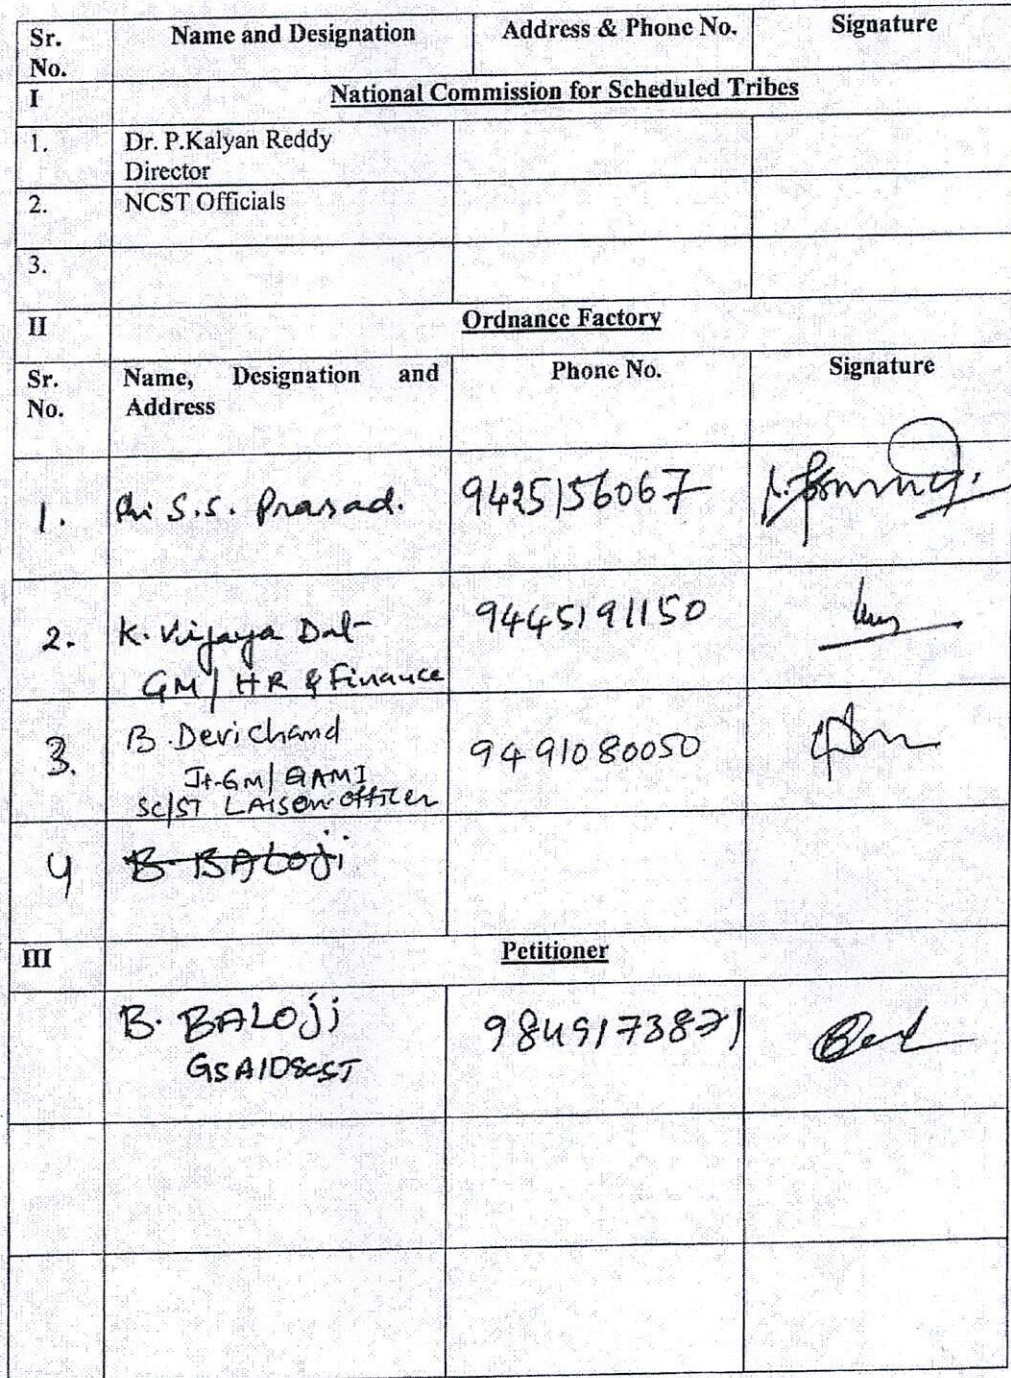 Sr. No. Name and Designation Address & Phone No. Signature
I National Commission for Scheduled Tribes
1. Dr. P.Kalyan Reddy
Director
2. NCST Officials
3.
II Ordnance Factory
Sr. No. Name, Designation and Address Phone No. Signature
1. S.S. Prasad. 9425156067
2. K. Vijaya Dat 9445191150
GM/ HR & Finance
3. B. Devichand 9491080050
Jt.GM/
SC/ST LAISON officer
4 B. BALOji
III Petitioner
B. BALOji 9849173871
GSAIDSCST